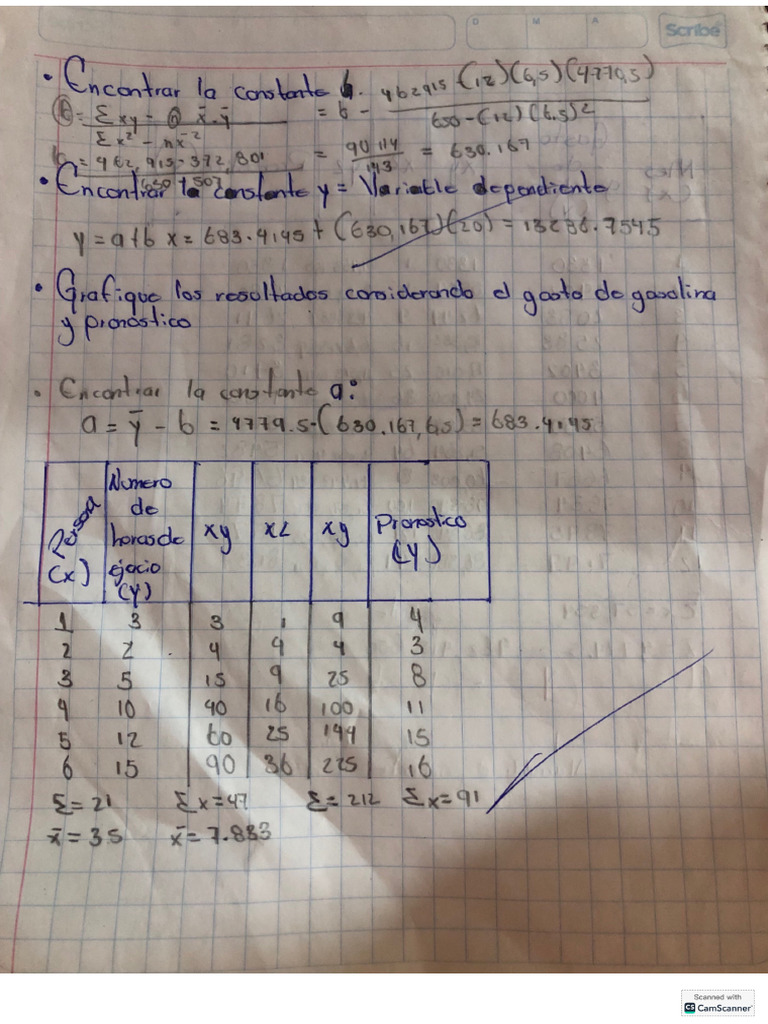 D M A Scribe
• Encontrar la constante b. 462915-(12)(6,5)(4779,5)
b = Σxy - n x̄·ȳ = b - 650-(12)(6.5)2
Σx² - nx̄²
b = 462,915-372,801 = 90 114 = 630.167
650 - 507 143
• Encontrar la constante y = Variable dependiente
y = a+b x = 683.4145 + (630,167)(20) = 13286.7545
• Grafique los resultados considerando el gasto de gasolina
y pronóstico
• Encontrar la constante a:
a = ȳ - b = 4779.5-(630.167,6,5) = 683.4145
Persona (x) Numero de horas de ejecio (y) xy x2 xy Pronostico (y)
1 3 3 1 9 4
2 2 4 4 4 3
3 5 15 9 25 8
4 10 40 16 100 11
5 12 60 25 144 15
6 15 90 36 225 16
Σ=21 Σx=47 Σ=212 Σx=91
x̄=3.5 x̄=7.833
Scanned with
CS CamScanner